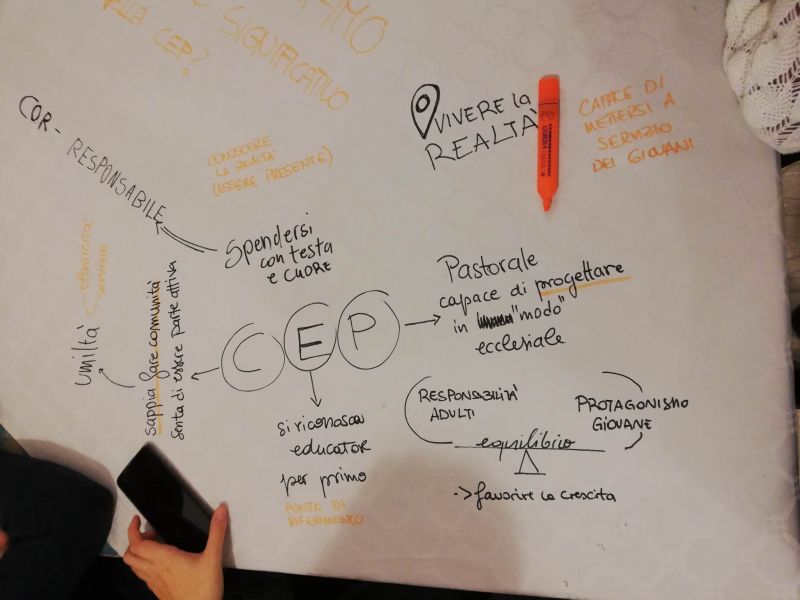 SIGNIFICATIVO
CEP?
COR-RESPONSABILE
CONOSCERE
LA REALTA'
(ESSERE PRESENTE)
VIVERE la
REALTÀ
CAPACE DI
METTERSI A
SERVIZIO
DEI GIOVANI
Spendersi
con testa
e CUORE
Pastorale
capace di progettare
in "modo"
ecclesiale
CEP
umiltà
servizio
sappia fare comunità
senta di essere parte attiva
si riconosca
educator
per primo
PUNTO DI
RIFERIMENTO
RESPONSABILITA'
ADULTI
PROTAGONISMO
GIOVANE
equilibrio
-> favorire la crescita